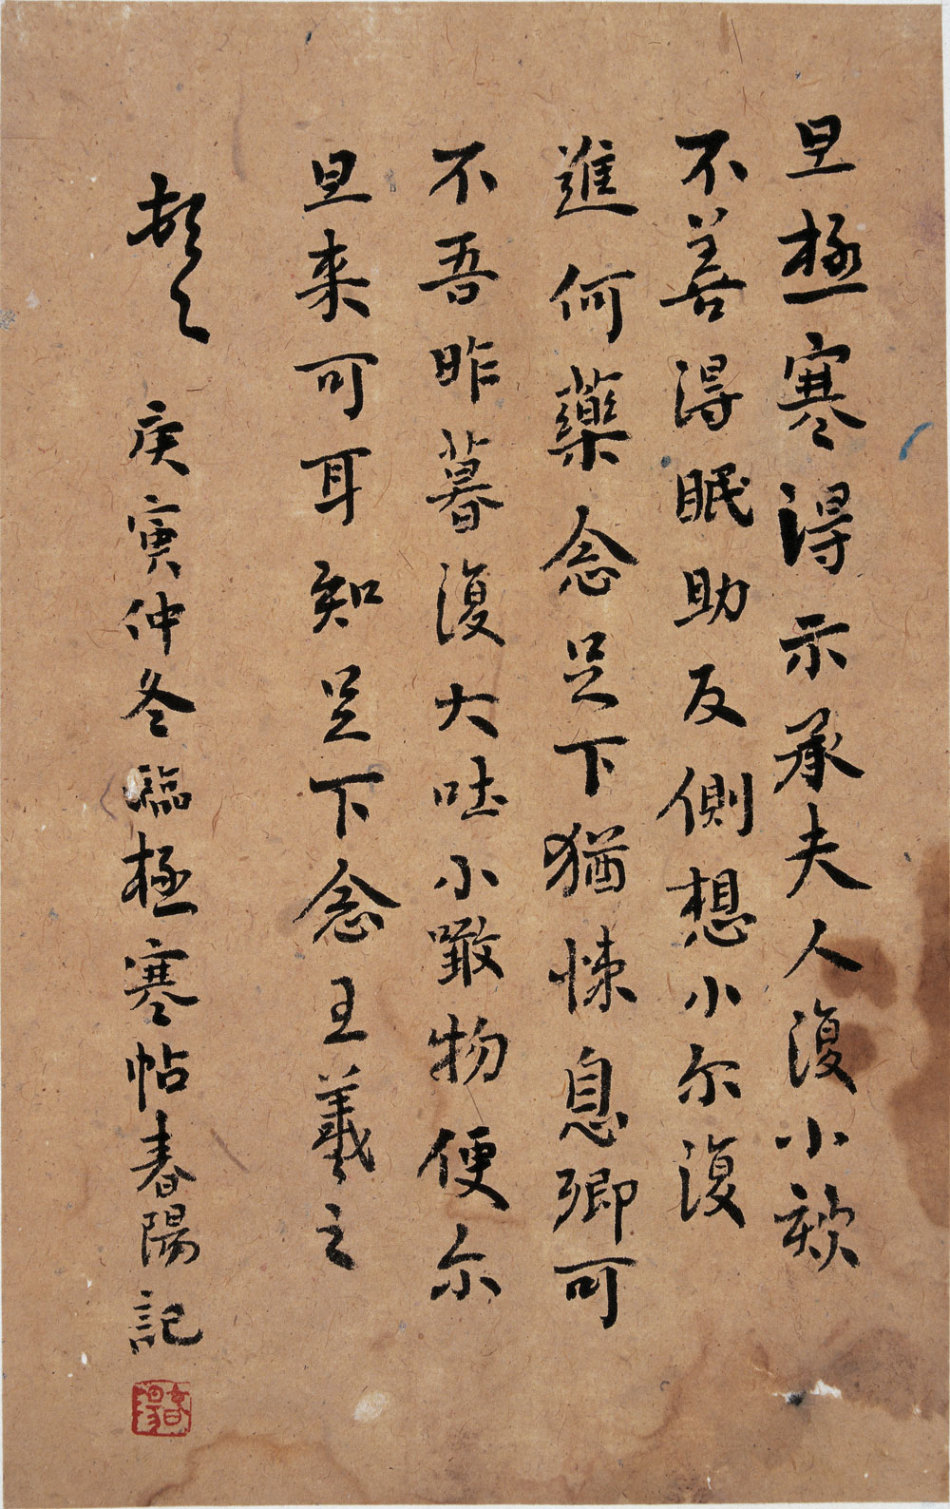 旦極寒得示承夫人復小欬
不善得眠助反側想小尔復
進何藥念足下猶悚息卿可
不吾昨暮復大吐小噉物便尔
旦来可耳知足下念王羲之
頓々
庚寅仲冬臨極寒帖春陽記
春陽